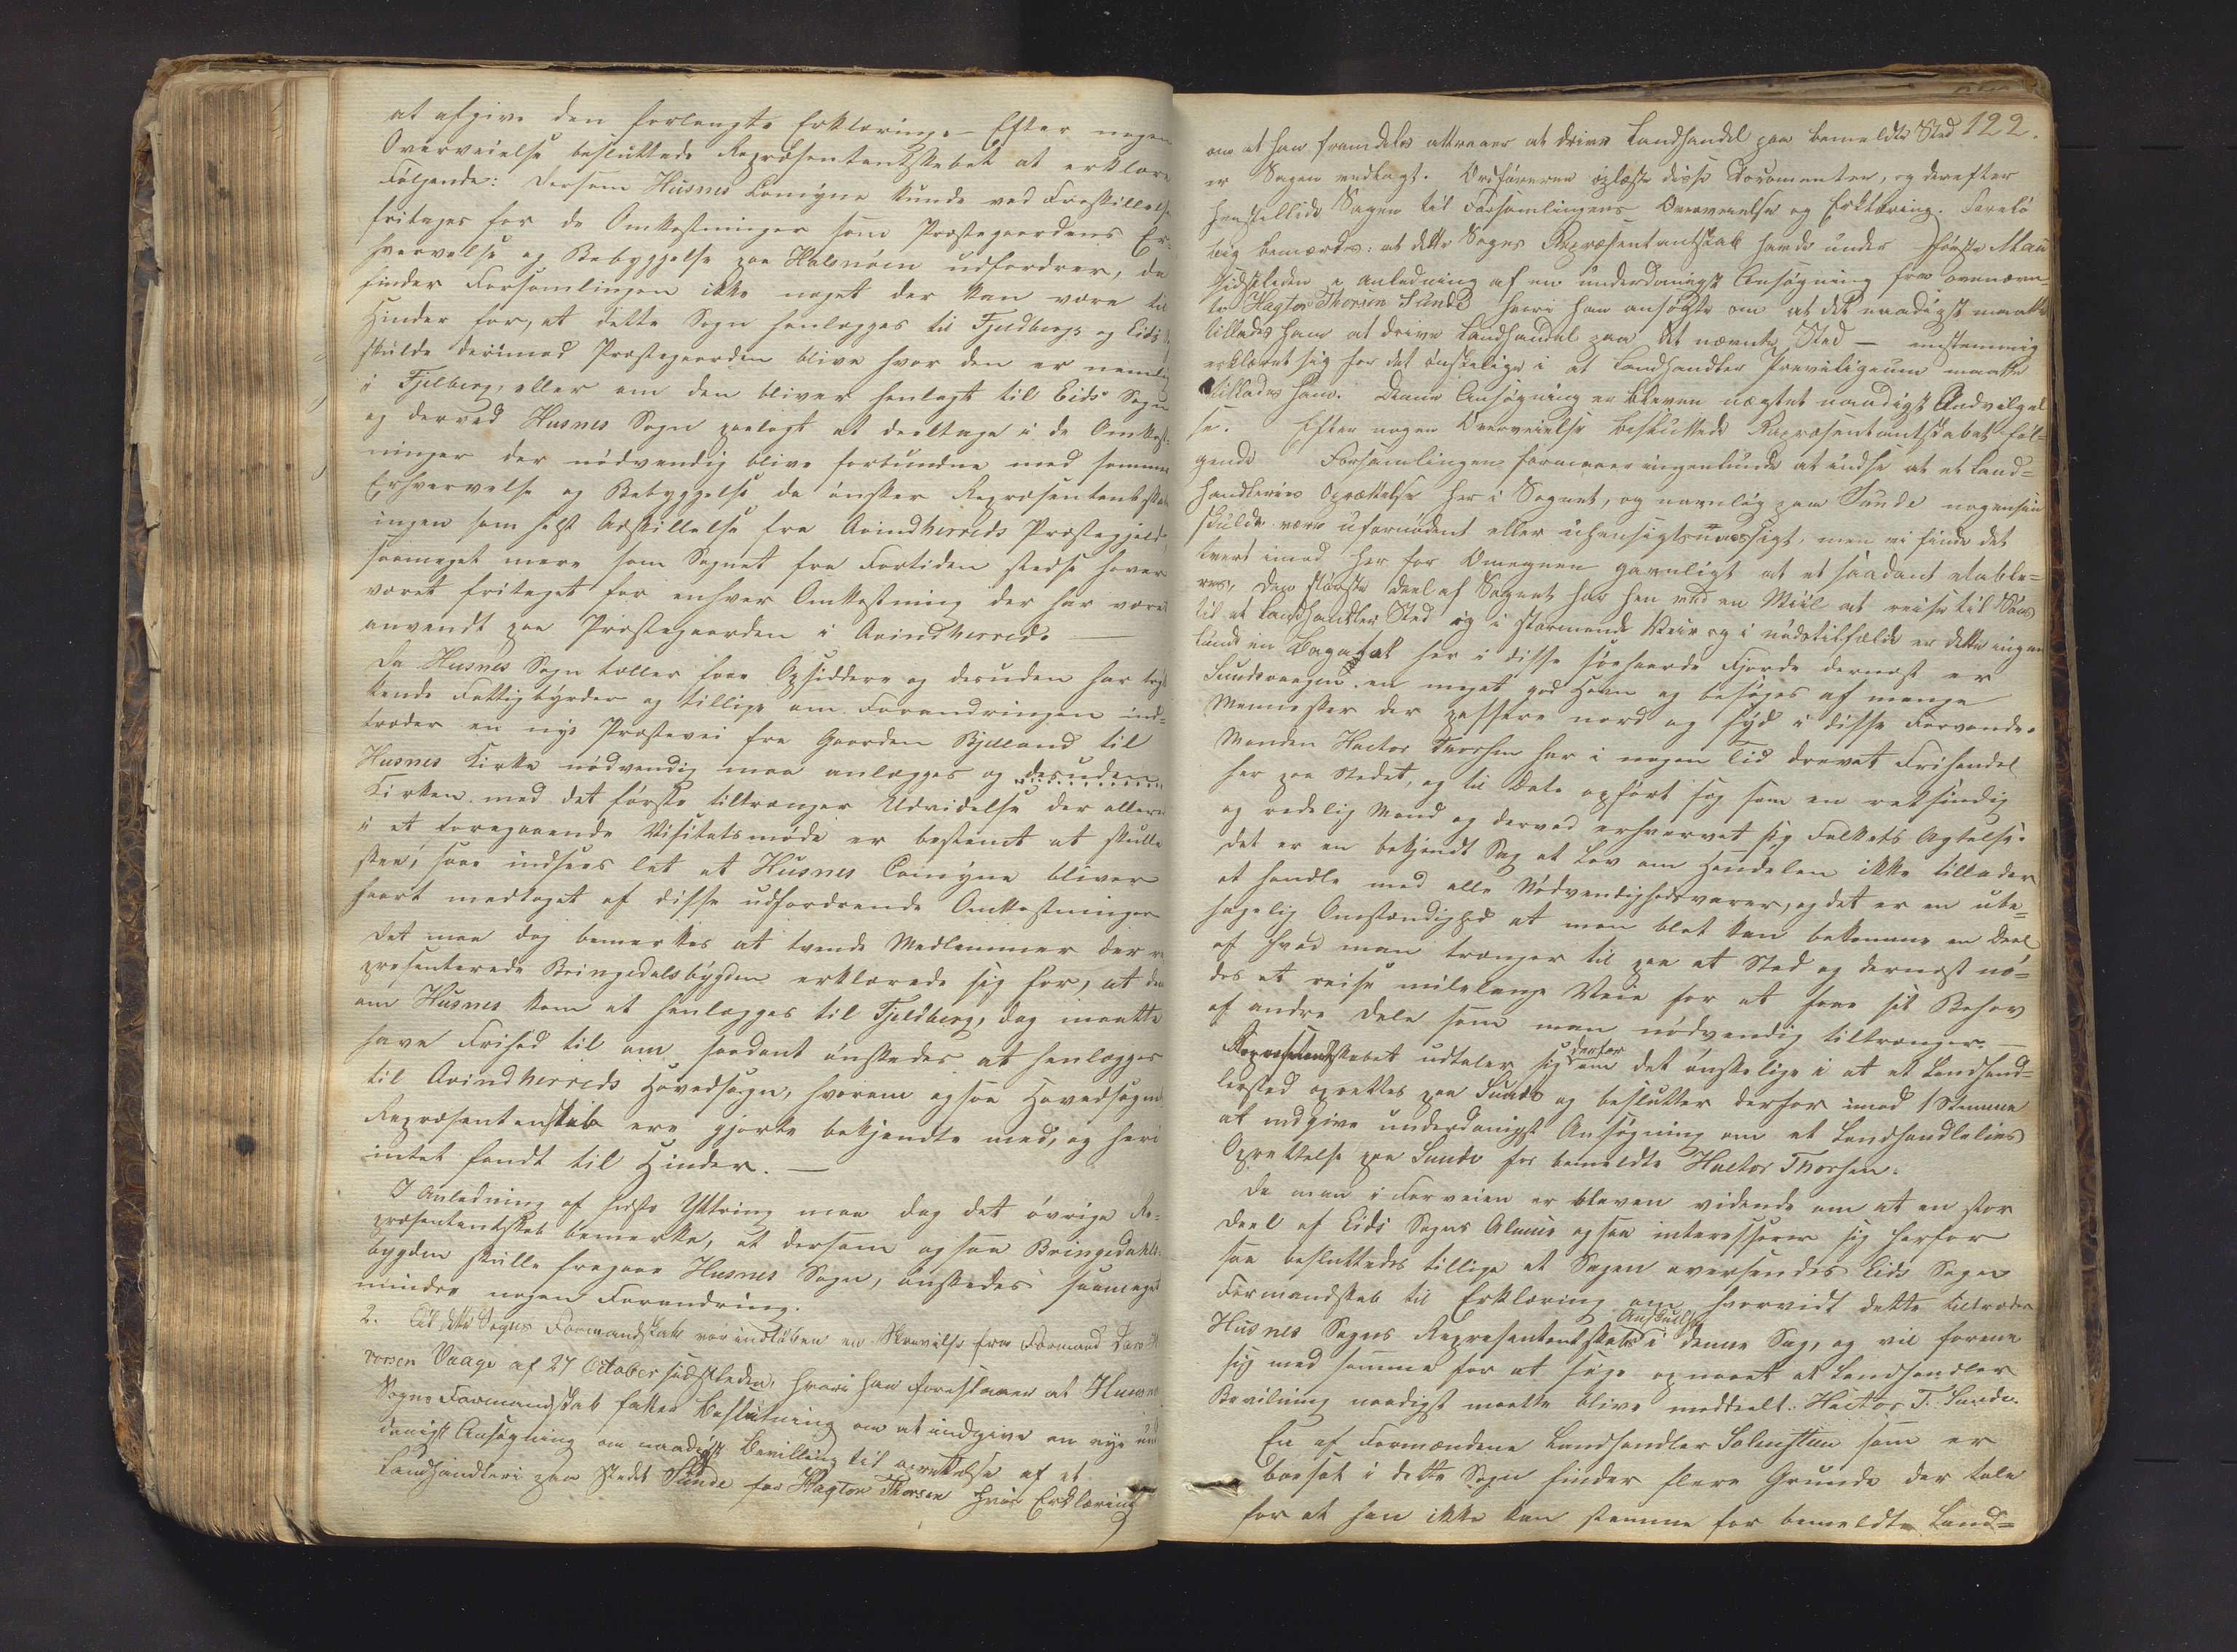 at afgive den forlangte Erklæring. – Efter nogen
Overveielse besluttede Repræsentantskabet at erklære
Følgende: Dersom Husnes Comyne kunde ved Fraskillelse
fritages for de Omkostninger som Præstegaardens Er-
hvervelse og Bebyggelse paa Halsnöen udfordrer, da
finder Forsamlingen ikke noget der kan være til
Hinder for, at dette Sogn henlægges til Fjeldbergs og Eids
skulde derimod Præstegaarden blive hvor den er nemlig
i Fjelberg, eller om den bliver henlagt til Eids Sogn
og derved Husnes Sogn paalagt at deeltage i de Omkost-
ninger der nödvendig blive forbundne med samme
Erhvervelse og Bebyggelse da önsker Repræsentantskab
ingen som helst Adskillelse fra Qvindherreds Præstegjeld,
saameget mere som Sognet fra Fortiden stedse haver
været fritaget for enhver Omkostning der har været
anvendt paa Præstegaarden i Qvindherred. —
Da Husnes Sogn tæller faae Opsiddere og desuden har tryk
kende Fattigbyrder og tillige om Forandringen ind-
træder en nye Præstevei fra Gaarden Bjelland til
Husnes Kirke nödvendig maa anlægges og desuden
Kirken med det förste tiltrænger Udvidelse der allere
i et foregaaende Visitatsmöde er bestemt at skulle
skee, saa indsees let at Husnes Comyne bliver
haart medtaget af disse udfordrende Omkostninger
Det maa dog bemerkes at tvende Medlemmer der re
presenterede Bringedalsbygden erklærede sig for, at der
om Husnes kom at henlægges til Fjeldberg, dog maatte
have Frihed til om saadant önskedes at henlægges
til Qvindherreds Hovedsogn, hvorom ogsaa Hovedsognets
Repræsentantskab ere gjorte bekjendte med, og heri
intet fandt til Hinder. —
I Anledning af sidste Yttring maa dog det övrige Re-
præsentantskab bemerke, at dersom ogsaa Bringedahls-
bygden skulle fragaae Husnes Sogn, önskedes saameget
mindre nogen Forandring.
2. Til dette Sogns Formandskab var indlöben en Skrivelse fra Formand Lars
Vaage af 27 October sidstleden, hvori han foreslaaer at Husnes
Sogns Formandskab fatter Beslutning om at indgive en nye un
danigst Ansögning om naadigst Bevilling til oprettelse af et
Landhandleri paa Stedet Sunde for Hagtor Thorsen hvis Erklæring
122.
om at han fremdeles attraaer at drive Landhandel paa bemeldte Sted
er Sagen vedlagt. Ordföreren oplæste disse Documenter, og derefter
henstillede Sagen til Forsamlingens Overveielse og Erklæring. Forelö
big bemærkes: at dette Sogns Repræsentantskab havde under förste Mai
sidstleden i anledning af en underdanigst Ansögning fra ovennævn
te Hagtor Thorsen Sunde hvori han ansögte om at det naadigst maatte
tillades ham at drive Landhandel paa det nævnte Sted — enstemmig
erklæret sig for det önskelige i at Landhandler Previligeum maatte
tillades ham. Denne Ansögning er bleven nægtet naadigst Andvilgel
se. Efter nogen Overveielse besluttede Repræsentantskabet föl-
gende Forsamlingen formaaer ingenlunde at indse at et Land-
handleries Oprættelse her i Sognet, og navnlig paa Sunde nogensin
skulde være ufornödent eller uhensigtsmæssigt, men vi finde det
tvertimod her for Omegnen gavnligt at et saadant etable-
res, Den störste deel af Sognet har hen ved en Miil at reise til Söes
til et Landhandler Sted og i stormende Veir og i nödstilfælde er dette ingen
lunde en Bagatel her i disse söehaarde Fjorde dernæst er
Sundevaagen en meget god Havn og besöges af mange
Mennesker der passere nord og syd i disse Farvande.
Manden Hactor Thorsen har i nogen Tid drevet Frihandel
her paa Stedet, og til Dato opfört sig som en retsindig
og redelig Mand og derved erhvervet sig Folkets Agtelse.
Det er en bekjendt Sag at Lov om Handelen ikke tillader
at handle med alle Nödvendighedsvarer, og det er en ube-
hagelig Omstændighed at man blot kan bekomme en Deel
af hvad man trænger til paa et Sted og dernæst nö-
des at reise milelange Veie for at faae sit Behov
af andre Dele som man nödvendig tiltrænger. —
Repræsentantskabet udtaler sig derfor om det önskelige i at et Landhand-
lersted oprettes paa Sunde og beslutter derfor imod 1 Stemme
at indgive underdanigst Ansögning om et Landhandleries
Oprettelse paa Sunde for bemeldte Hactor Thorsen.
Da man i Forveien er bleven vidende om at en stor
Deel af Eids Sogns Almue ogsaa interesserer sig herfor
saa besluttedes tillige at Sagen oversendes Eids Sogns
Formandskab til Erklæring om hvorvidt dette tiltræder
Husnes Sogns Repræsentantskabs Anskuelse i denne Sag, og vil forene
sig med samme for at söge opnaaet at Landhandler
Bevilning naadigst maatte blive meddeelt: Hactor T. Sunde.
En af Formændene Landhandler Solenstun som er
bosat i dette Sogn finder flere Grunde der tale
for at han ikke kan stemme for bemeldte Land-